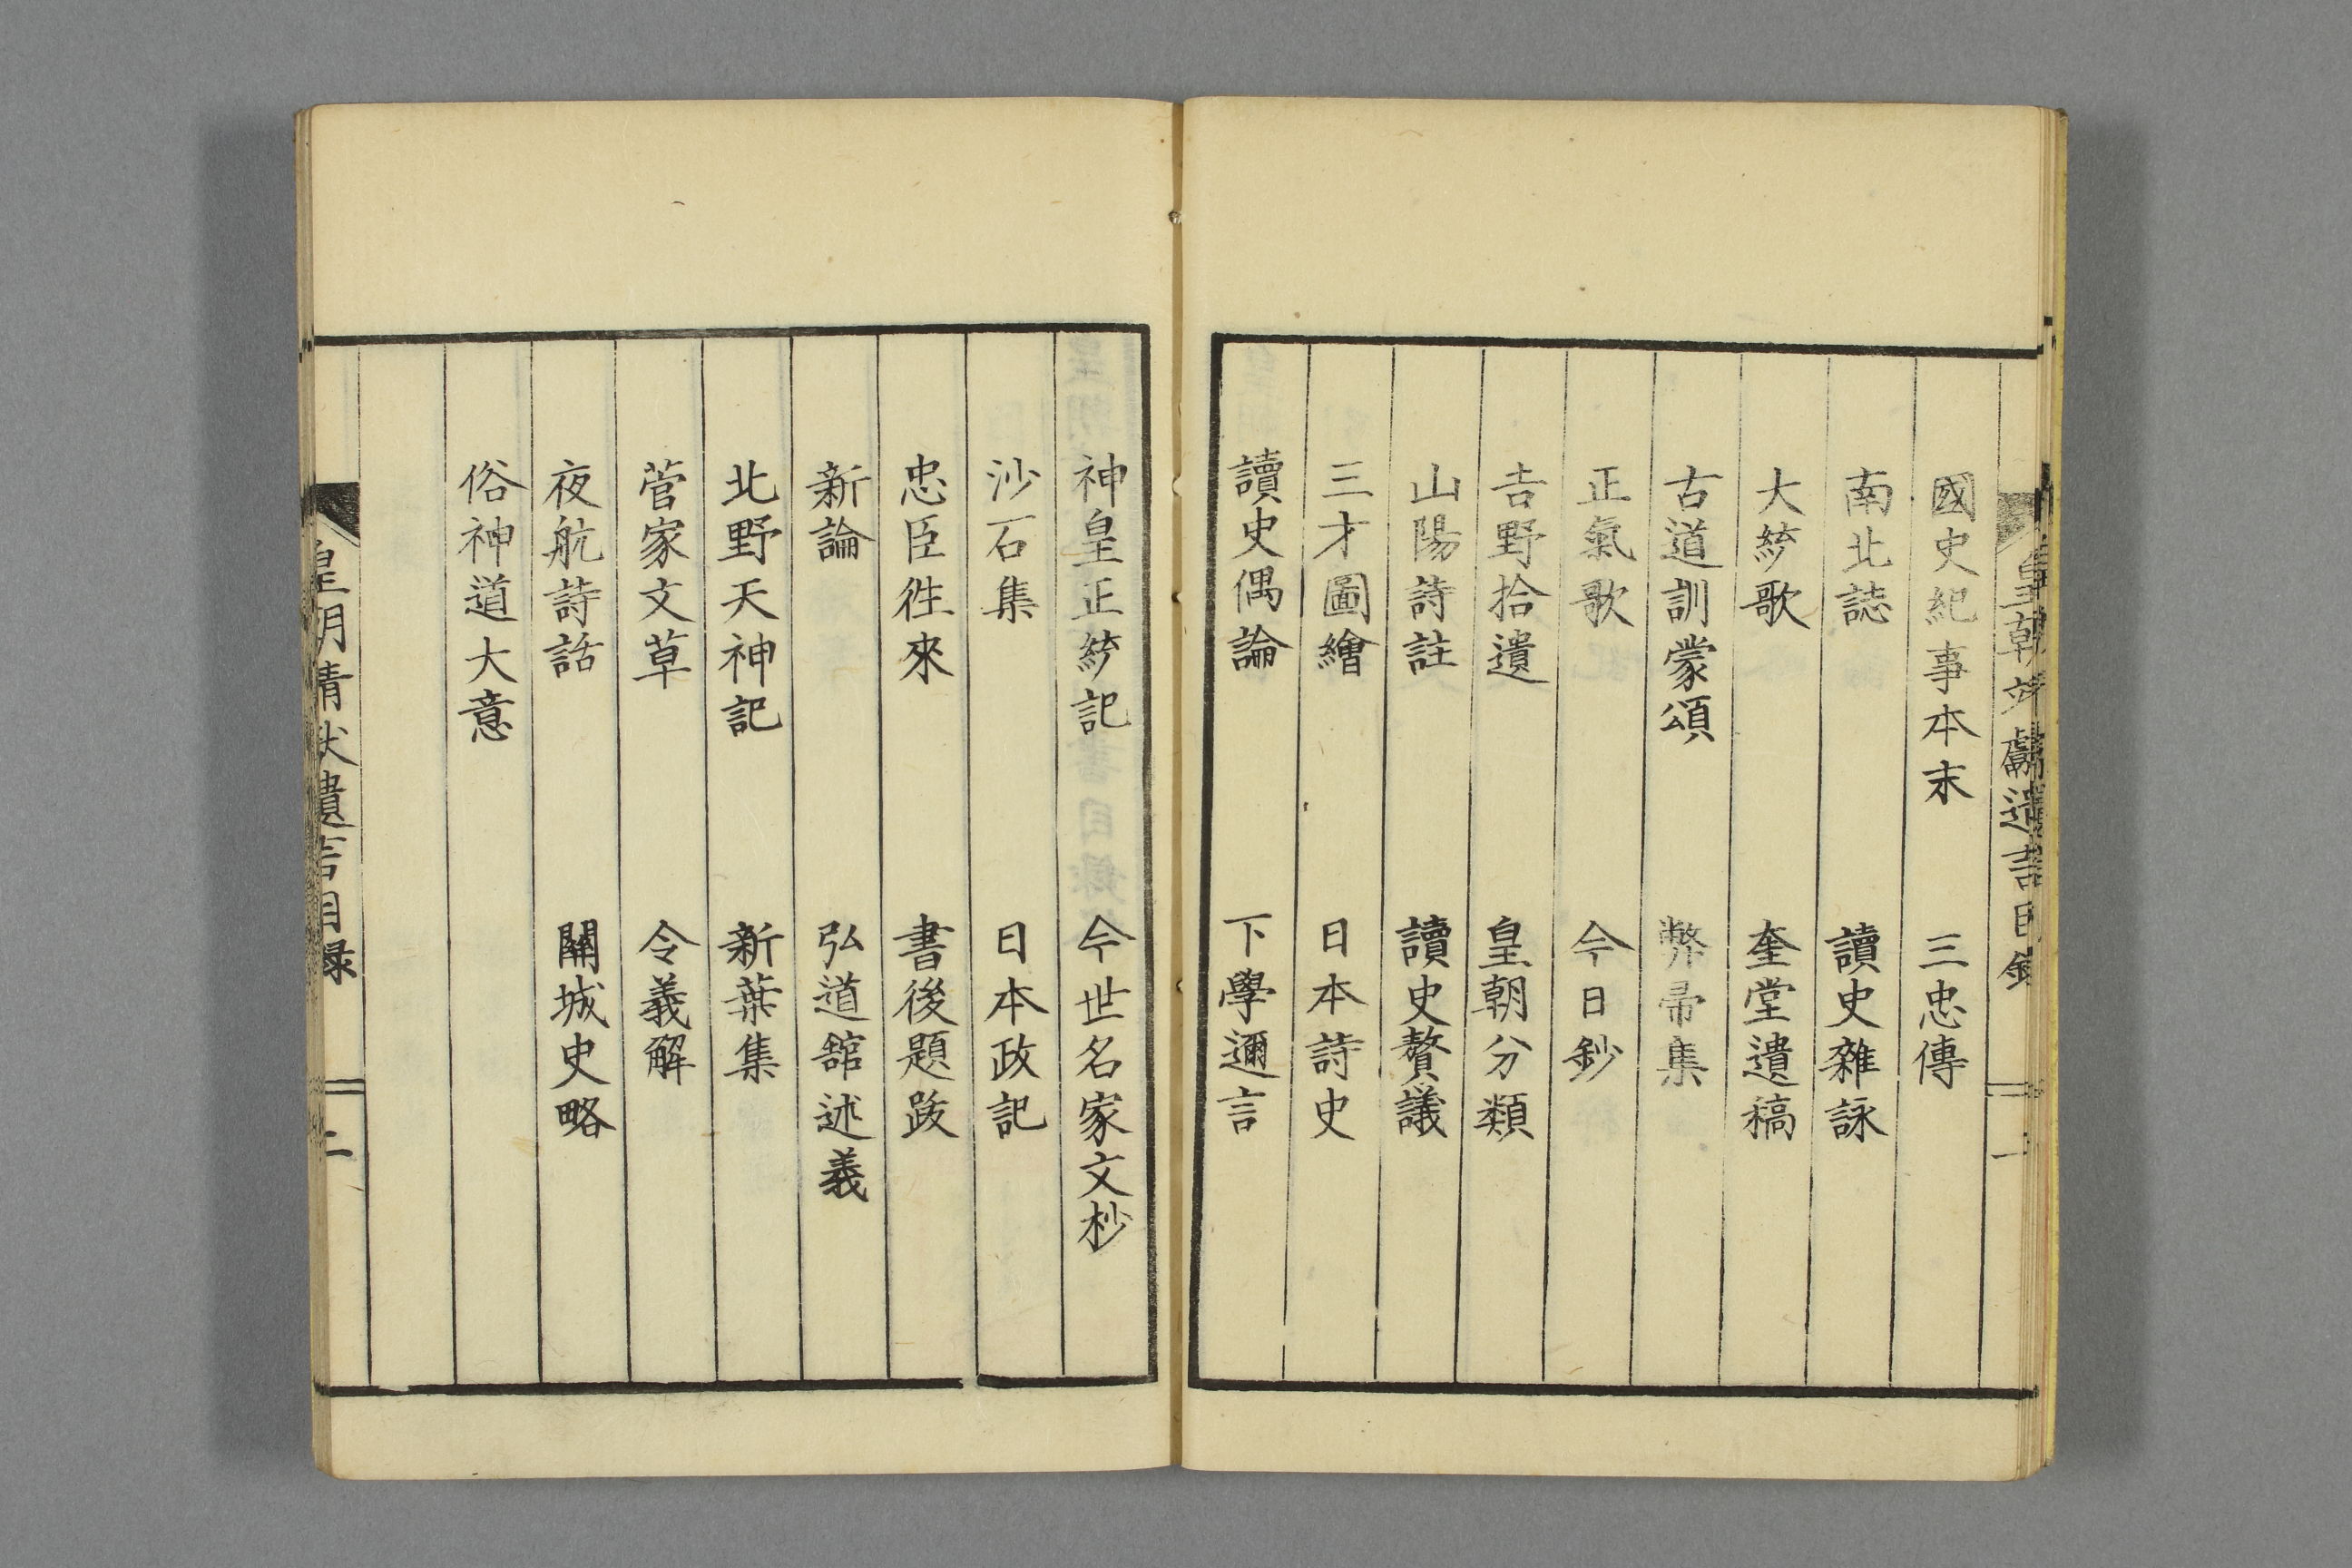 國史紀事本末　三忠傳
南北誌　讀史雜詠
大統歌　奎堂遺稿
古道訓蒙頌　弊帚集
正氣歌　今日鈔
吉野拾遺　皇朝分類
山陽詩註　讀史贅議
三才圖繪　日本詩史
讀史偶論　下學邇言
神皇正統記　今世名家文抄
沙石集　日本政記
忠臣徃來　書後題跋
新論　弘道舘述義
北野天神記　新葉集
菅家文草　令義解
夜航詩話　關城史略
俗神道大意